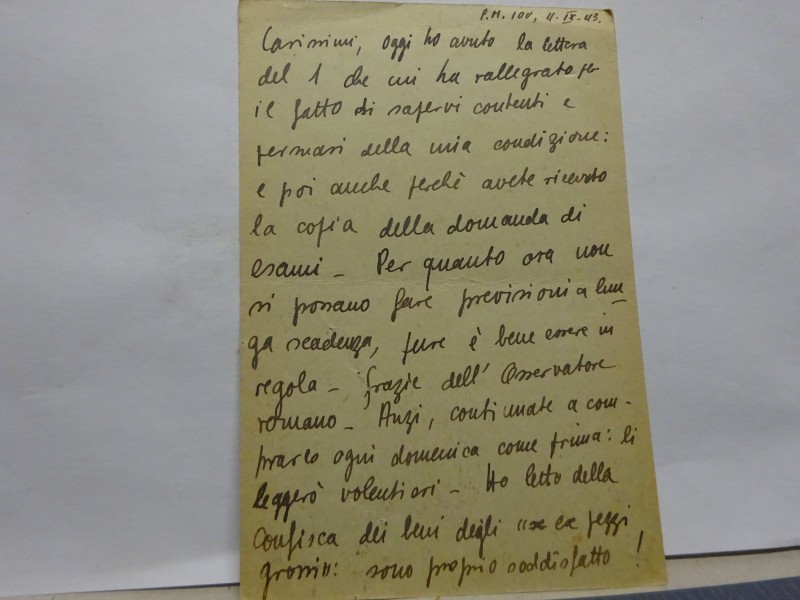 P.M. 100, 4-IX-43.
Carissimi, oggi ho avuto la lettera
del 1 che mi ha rallegrato per
il fatto di sapervi contenti e
persuasi della mia condizione:
e poi anche perchè avete ricevuto
la copia della domanda di
esami - Per quanto ora non
si possano fare previsioni a lun-
ga scadenza, pure è bene essere in
regola - Grazie dell'Osservatore
romano - Anzi, continuate a com-
prarlo ogni domenica come prima: li
leggerò volentieri - Ho letto della
confisca dei beni degli "ex pezzi
grossi": sono proprio soddisfatto!